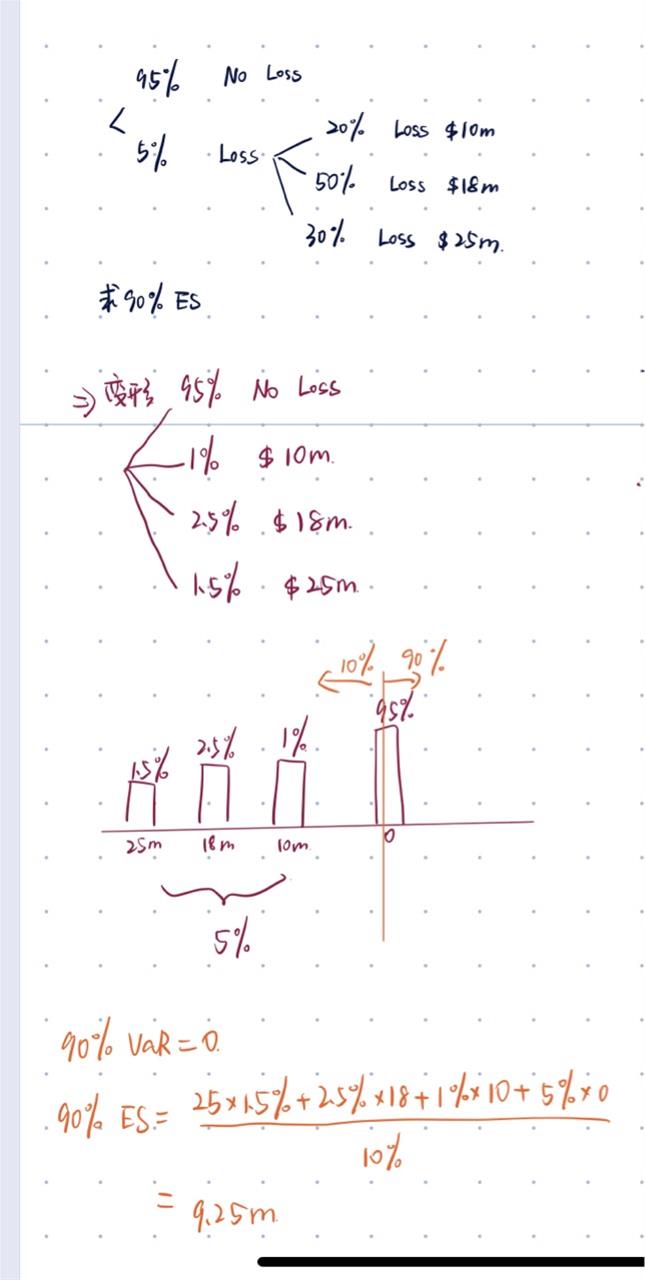 95% No Loss
5% Loss
20% Loss $10m
50% Loss $18m
30% Loss $25m.
求90% ES
⇒ 变形 95% No Loss
1% $10m.
2.5% $18m.
1.5% $25m.
10% 90%
95%
1.5% 2.5% 1%
25m 18m 10m. 0
5%
90% VaR = 0.
90% ES = (25×1.5% + 2.5%×18 + 1%×10 + 5%×0) / 10%
= 9.25m